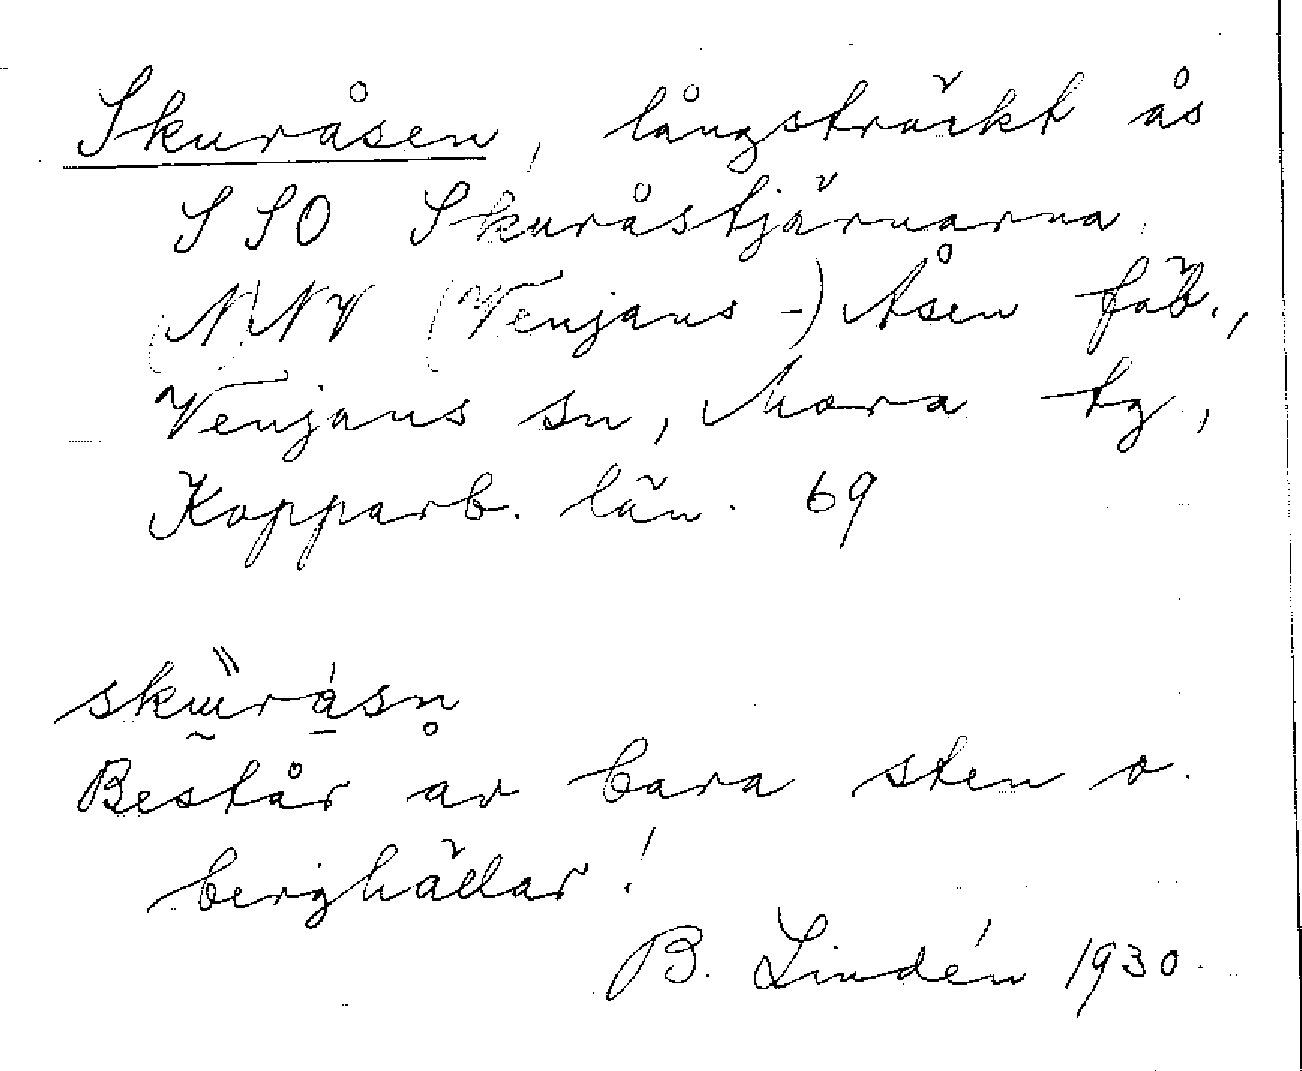 Skuråsen, långsträckt ås
SSO Skuråstjärnarna
(N)NV (Venjans-) Åsen fäb.,
Venjans sn, Mora tg,
Kopparb. län. 69
Består av bara sten o.
berghällar!
B. Lindén 1930